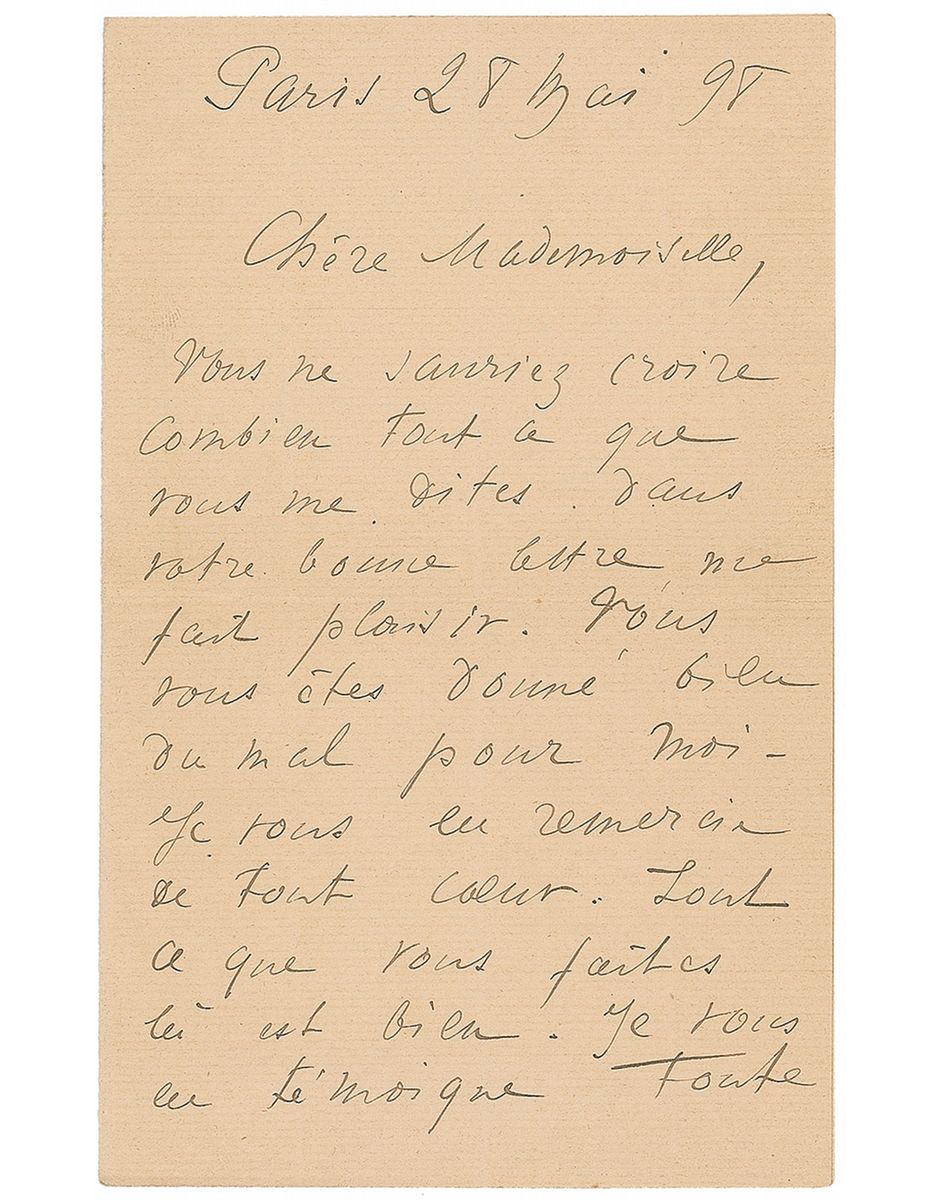 Paris 28 Mai 98
Chère Mademoiselle,
Vous ne sauriez croire
combien tout ce que
vous me dites dans
votre bonne lettre me
fait plaisir. Vous
vous êtes donné bien
du mal pour moi -
Je vous en remercie
de tout cœur. Tout
ce que vous faites
là est bien. Je vous
en témoigne toute